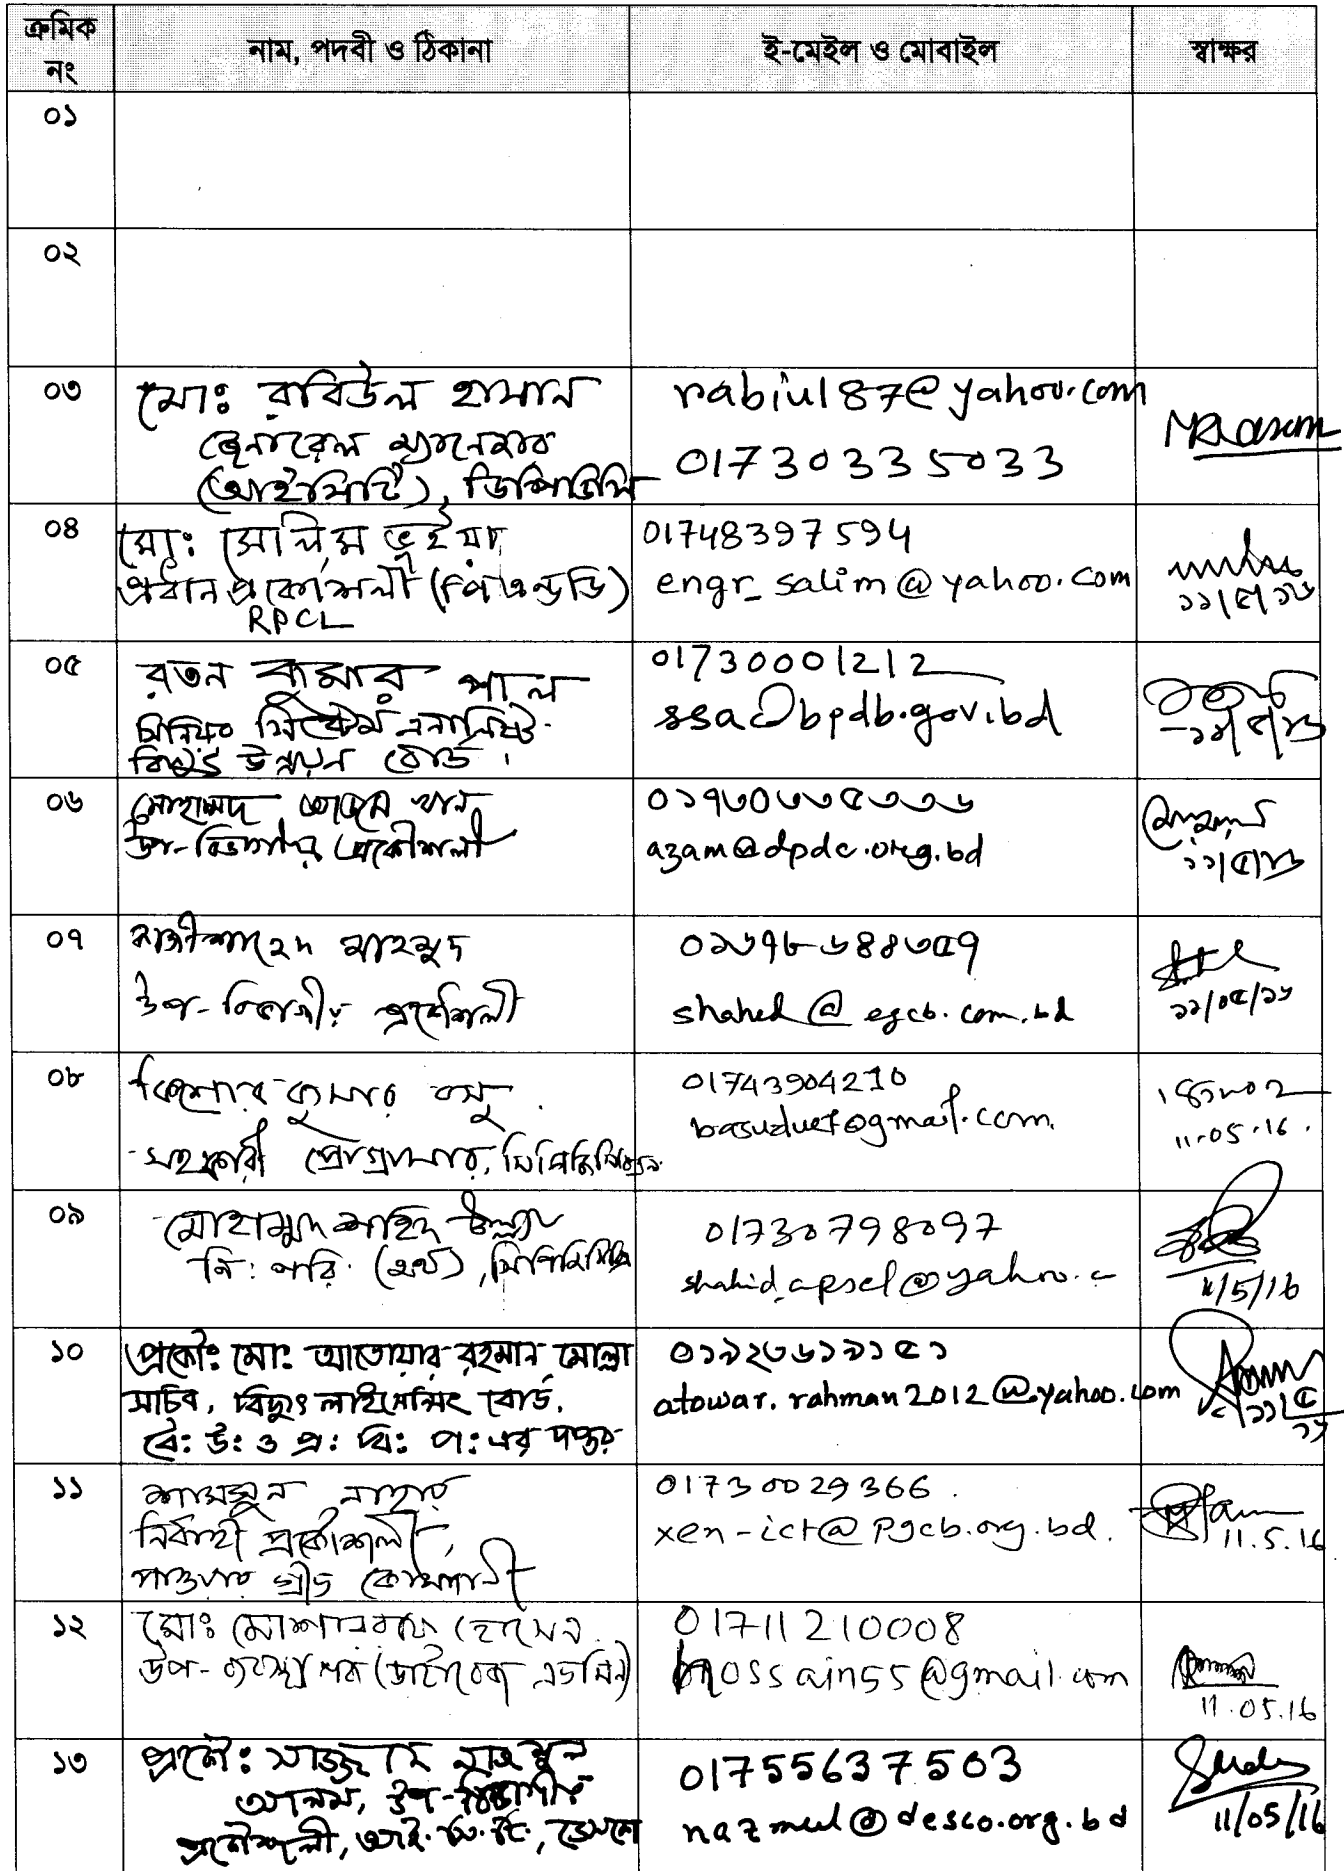 ক্রমিক নং
নাম, পদবী ও ঠিকানা
ই-মেইল ও মোবাইল
স্বাক্ষর
০১
০২
০৩
মোঃ রবিউল হাসান
জেনারেল ম্যানেজার
(আইসিটি), ডিপিডিসি
rabiul87@yahoo.com
01730335033
০৪
মোঃ সেলিম ভূঁইয়া
প্রধান প্রকৌশলী (পিএন্ডডি)
RPCL
01748397594
engr_salim@yahoo.com
১১/৫/১৬
০৫
রতন কুমার পাল
সিনিয়র সিস্টেম এনালিষ্ট
বিদ্যুৎ উন্নয়ন বোর্ড।
01730001212
ssa@bpdb.gov.bd
১১/৫/১৬
০৬
মোহাম্মদ আজম খান
উপ-বিভাগীয় প্রকৌশলী
০১৭৩০৩৩৫৩৩৬
azam@dpdc.org.bd
১১/৫/১৬
০৭
কাজী শাহেদ মাহমুদ
উপ-বিভাগীয় প্রকৌশলী
০১৬৭৮৬৪৪৩৫৭
shahed@egcb.com.bd
১১/০৫/১৬
০৮
কিশোর কুমার বসু
সহকারী প্রোগ্রামার,
01743904210
basuduet@gmail.com.
11.05.16.
০৯
মোহাম্মদ শহিদ উল্লাহ
নি: পরি: (অর্থ),
01730798097
shahid.apscl@yahoo.c
11/5/16
১০
প্রকৌঃ মোঃ আতোয়ার রহমান মোল্লা
সচিব, বিদ্যুৎ লাইসেন্সিং বোর্ড,
বৈঃ উঃ ও প্রঃ বিঃ পঃ এর দপ্তর
০১৯২৩৬১৯১৫১
atowar.rahman2012@yahoo.com
১১/৫/১৬
১১
শামসুন নাহার
নির্বাহী প্রকৌশলী,
পাওয়ার গ্রীড কোম্পানী
01730029366.
xen-ict@pgcb.org.bd.
11.5.16
১২
মোঃ মোশাররফ হোসেন
উপ-ব্যবস্থাপক (ডাটাবেজ এডমিন)
01711210008
mossain55@gmail.com
11.05.16
১৩
প্রকৌ:
আলম, উপ-বিভাগীয়
প্রকৌশলী, আই.সি.টি., ডেসকো
01755637503
nazmul@desco.org.bd
11/05/16